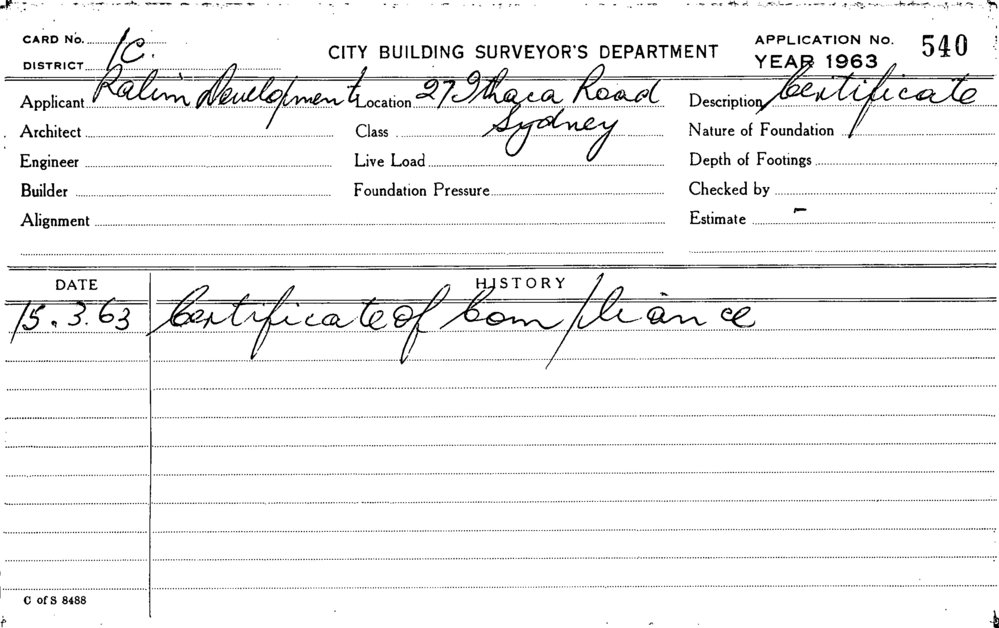 CARD No. 1C.
CITY BUILDING SURVEYOR'S DEPARTMENT
APPLICATION No. 540
DISTRICT
YEAR 1963
Applicant Ralim Developments Location 27 Ithaca Road Description Certificate
Sydney
Architect Class Nature of Foundation
Engineer Live Load Depth of Footings
Builder Foundation Pressure Checked by
Alignment Estimate -
DATE HISTORY
15.3.63 Certificate of Compliance
C of S 8488